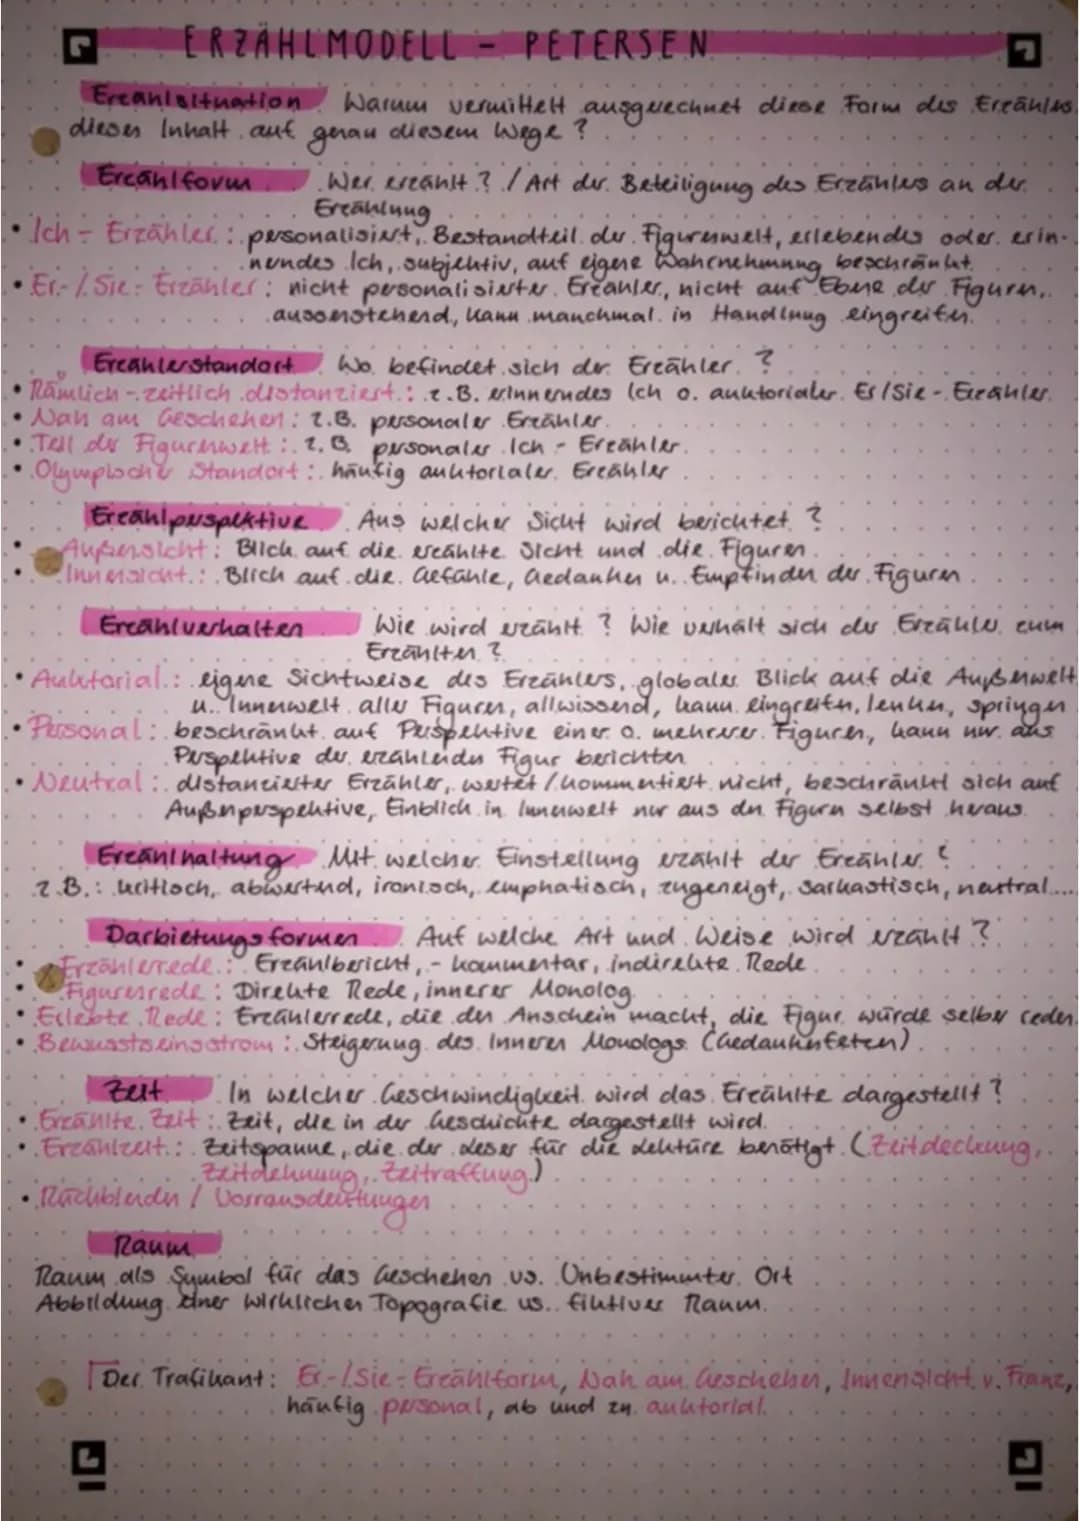 ERZÄHLMODELL - PETERSEN
Erzählsituation Warum vermittelt ausgerechnet diese Form des Erzählens
diesen Inhalt auf genau diesem Wege?
Erzählform Wer erzählt? / Art der Beteiligung des Erzählers an der
Erzählung
• Ich-Erzähler: personalisiert, Bestandteil der Figurenwelt, erlebendes oder erin-
nerndes Ich, subjektiv, auf eigene Wahrnehmung beschränkt.
• Er-/Sie-Erzähler: nicht personalisierter Erzähler, nicht auf Ebene der Figuren,
aussenstehend, kann manchmal in Handlung eingreifen.
Erzählerstandort Wo befindet sich der Erzähler?
• Rämlich-zeitlich distanziert: z.B. erinnerndes Ich o. auktorialer Er/Sie-Erzähler
• Nah am Geschehen: z.B. personaler Erzähler
• Teil der Figurenwelt: z.B. personaler Ich-Erzähler
• Olympischer Standort: häufig auktorialer Erzähler
Erzählperspektive Aus welcher Sicht wird berichtet?
• Außensicht: Blick auf die erzählte Sicht und die Figuren
• Innensicht: Blick auf die Gefühle, Gedanken u. Empfinden der Figuren
Erzählverhalten Wie wird erzählt? Wie verhält sich der Erzähler zum
Erzählten?
• Auktorial: eigene Sichtweise des Erzählers, globaler Blick auf die Außenwelt
u. Innenwelt aller Figuren, allwissend, kann eingreifen, lenken, springen
• Personal: beschränkt auf Perspektive einer o. mehrerer Figuren, kann nur aus
Perspektive der erzählenden Figur berichten
• Neutral: distanzierter Erzähler, wertet/kommentiert nicht, beschränkt sich auf
Außenperspektive, Einblick in Innenwelt nur aus den Figuren selbst heraus
Erzählhaltung Mit welcher Einstellung erzählt der Erzähler?
z.B.: kritisch, abwertend, ironisch, emphatisch, zugeneigt, sarkastisch, neutral....
Darbietungsformen Auf welche Art und Weise wird erzählt?
• Erzählerrede: Erzählbericht, -kommentar, indirekte Rede
• Figurenrede: Direkte Rede, innerer Monolog
• Erlebte Rede: Erzählerrede, die den Anschein macht, die Figur würde selber reden
• Bewusstseinsstrom: Steigerung des Inneren Monologs (Gedankenfeten)
Zeit In welcher Geschwindigkeit wird das Erzählte dargestellt?
• Erzählte Zeit: Zeit, die in der Geschichte dargestellt wird
• Erzählzeit: Zeitspanne, die der Leser für die Lektüre benötigt (Zeitdeckung,
Zeitdehnung, Zeitraffung)
• Rückblenden / Vorrausdeutungen
Raum
Raum als Symbol für das Geschehen vs. Unbestimmter Ort
Abbildung einer wirklichen Topografie vs. fiktiver Raum
Der Trafikant: Er-/Sie-Erzählform, Nah am Geschehen, Innensicht v. Franz,
häufig personal, ab und zu auktorial